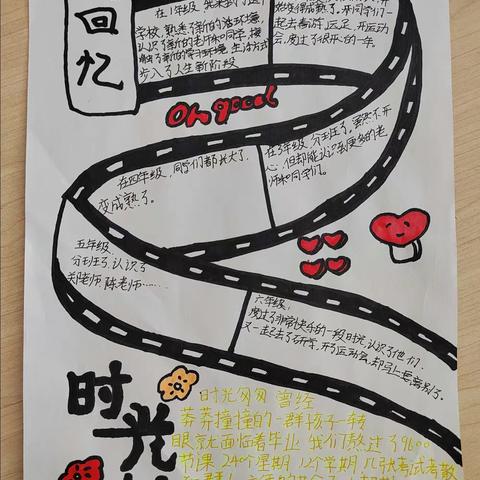 回忆
在1年级,先来到了这个
学校,熟悉了新的活环境,
认识了新的老师和同学,接
触了新的学习环境,生活方式
步入了人生新阶段
始变得成熟了。开同学们一
起去春游,远足,开运动
会,度过了很开心的一年。
Oh good
在3年级,分班了,虽然不开
心,但却能认识更多的老
师和同学们。
在四年级,同学们都长大了,
变成熟了。
五年级
分班了,认识了
郑老师,陈老师……
六年级:
度过了非常快乐的一段时光,认识了他们,
又一起去了研学,开了运动会,却马上要离别了。
时光
时光匆匆 曾经
莽莽撞撞的一群孩子一转
眼就面临着毕业 我们熬过了9600
节课 240个星期 12个学期 几张考试卷散